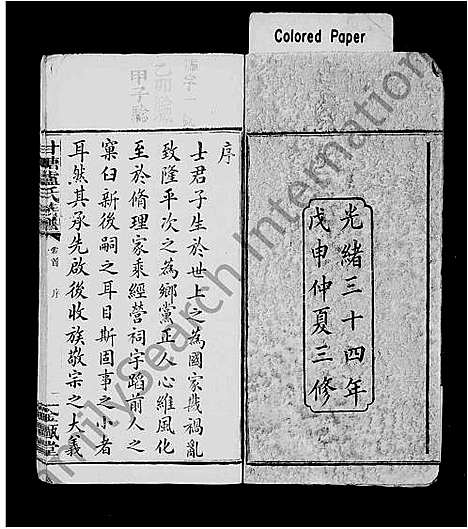 Colored Paper
光緒三十四年
戊申仲夏三修
序
士君子生於世上之為國家戡禍亂
致隆平次之為鄉黨正人心維風化
至於脩理家乘經營祠宇蹈前人之
窠臼新後嗣之耳目斯固事之小者
耳然其承先啟後收族敬宗之大義
甘塘盧氏族譜
卷首
序
一
甲子
FamilySearch International